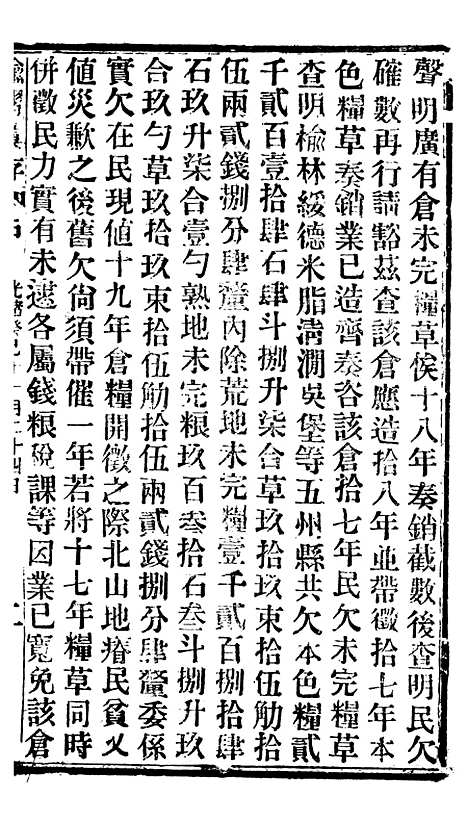 聲明廣有倉未完糧草俟十八年奏銷截數後查明民欠
確數再行請豁茲查該倉應造拾八年並帶徵拾七年本
色糧草奏銷業已造齊奏咨該倉拾七年民欠未完糧草
查明榆林綏德米脂淸澗吳堡等五州縣共欠本色糧貳
千貳百壹拾肆石肆斗捌升柒合草玖拾玖束拾伍觔拾
伍兩貳錢捌分肆釐內除荒地未完糧壹千貳百捌拾肆
石玖升柒合壹勺熟地未完粮玖百叁拾石叁斗捌升玖
合玖勺草玖拾玖束拾伍觔拾伍兩貳錢捌分肆釐委係
實欠在民現值十九年倉糧開徵之際北山地瘠民貧乂
值災歉之後舊欠尙須帶催一年若將十七年糧草同時
併徵民力實有未逮各屬錢粮稅課等因業已寬免該倉
諭摺彙存 光緒癸巳 月二十四日